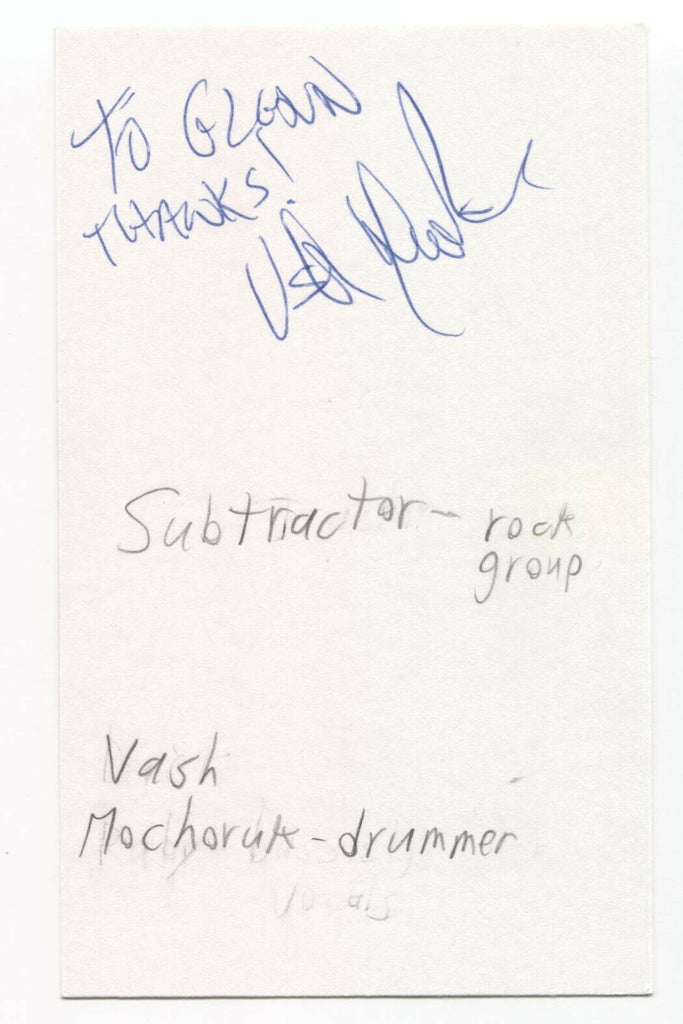 TO GLENN
THANKS!
Subtractor - rock
group
Vash
Mochoruk - drummer
Vocals